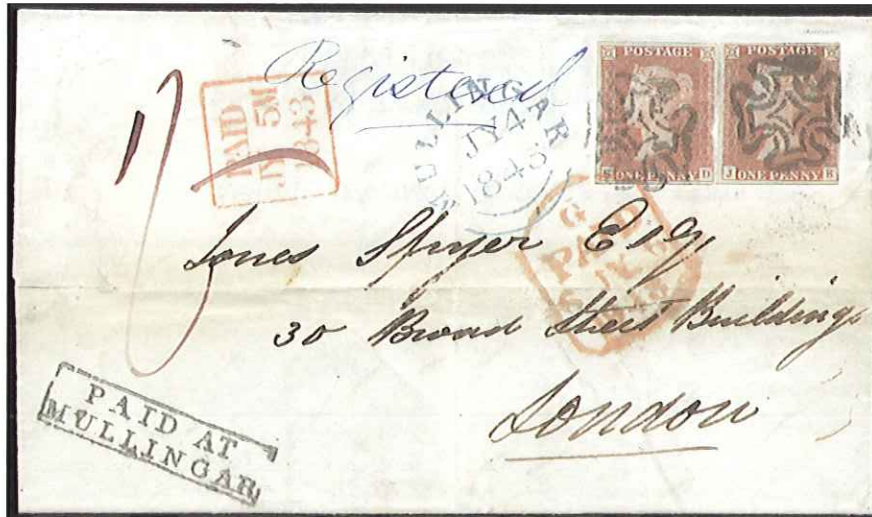 Registered
PAID
JY 5M
1843
MULLINGAR
JY 4
1843
POSTAGE
D
ONE PENNY
POSTAGE
J ONE PENNY B
G
PAID
JY 6
1843
Esqr
30 Broad Street Buildings
London
PAID AT
MULLINGAR